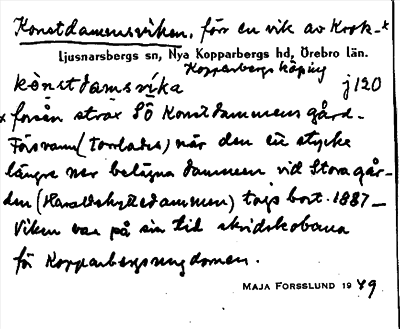 Konstdamensviken, förr en vik av Krok-x
Ljusnarsbergs sn, Nya Kopparbergs hd, Örebro län.
Kopparbergs köping
kònstdamsvika j120
x forsån strax SÖ Konstdammens gård.
Försvann (torrlades) när den ett stycke
längre ner belägna dammen vid Stora går-
den (Haraldshyttedammen) togs bort 1887 –
Viken var på sin tid skridskobana
för Kopparbergsungdomen.
MAJA FORSSLUND 1949